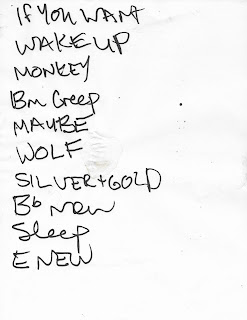 If YOU WANT
WAKE UP
MONKEY
Bm Creep
MAYBE
WOLF
SILVER + GOLD
Bb new
Sleep
E NEW